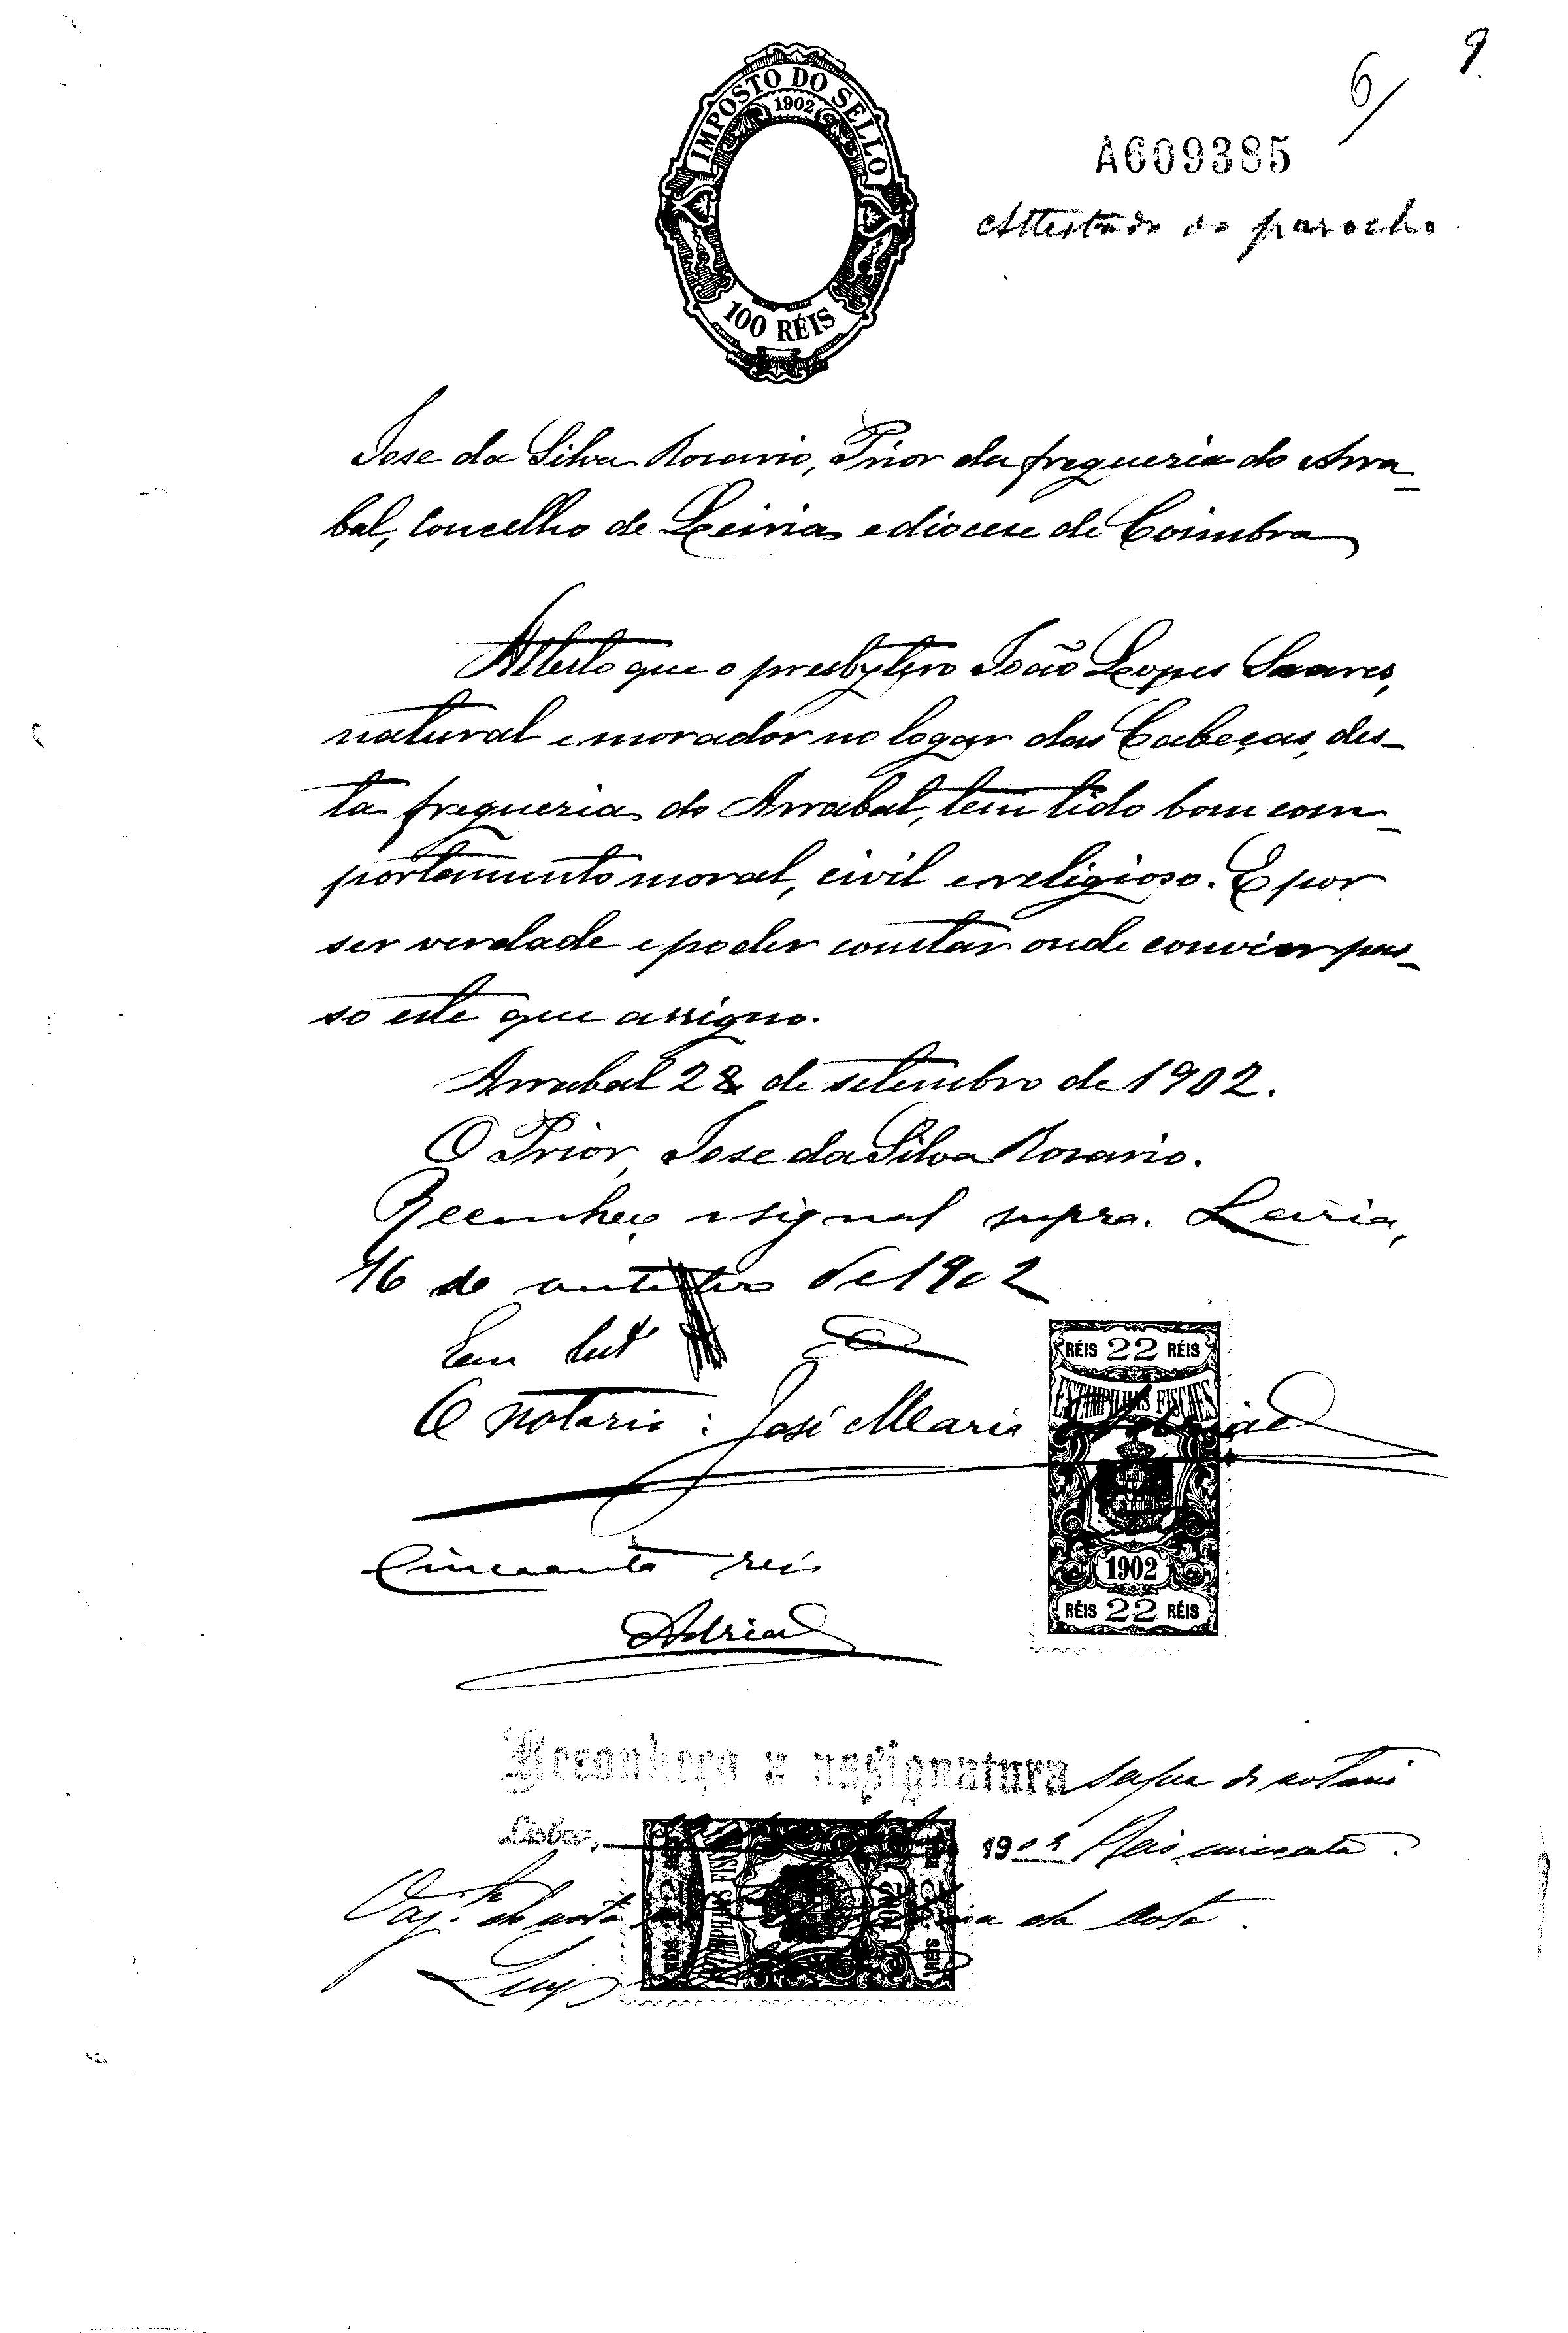 9
6/
IMPOSTO DO SELLO
1902
100 RÉIS
A609385
Attestado do parocho.
Jose da Silva Rosario, Prior da freguezia do Arra-
bal, Concelho de Leiria e diocese de Coimbra
Attesto que o presbytero João Lopes Soares,
natural e morador no logar das Cabeças, des-
ta freguezia do Arrabal, tem tido bom com-
portamento moral, civil e religioso. E por
ser verdade e poder constar onde convier pas-
so este que assigno.
Arrabal 28 de setembro de 1902.
O Prior, Jose da Silva Rosario.
Reconheço o signal supra. Leiria,
16 de outubro de 1902
Em
RÉIS 22 RÉIS
ESTAMPILHAS FISCAES
O notario: José Maria
1902
RÉIS 22 RÉIS
Cincoenta reis
Adrião
Reconheço a assignatura supra do notario
Lisboa, 1902 Reis cincoenta.
da nota.
Luiz